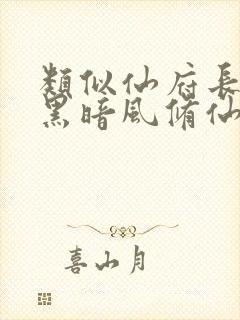 類似仙府長
黑暗風脩仙
喜山月